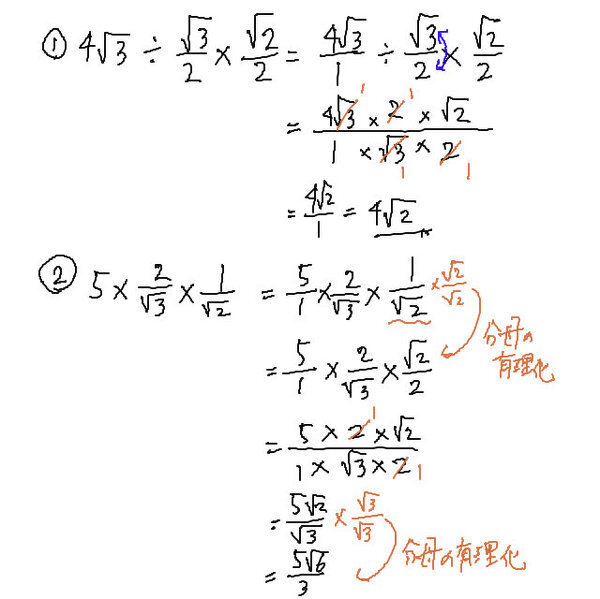 ① 4√3 ÷ √3/2 × √2/2 = 4√3/1 ÷ √3/2 × √2/2
= (4√3 × 2 × √2)/(1 × √3 × 2) 1 1 1 1
= 4√2/1 = 4√2
② 5 × 2/√3 × 1/√2 = 5/1 × 2/√3 × 1/√2 × √2/√2
分母の
有理化
= 5/1 × 2/√3 × √2/2
= (5 × 2 × √2)/(1 × √3 × 2) 1 1
= 5√2/√3 × √3/√3
分母の有理化
= 5√6/3